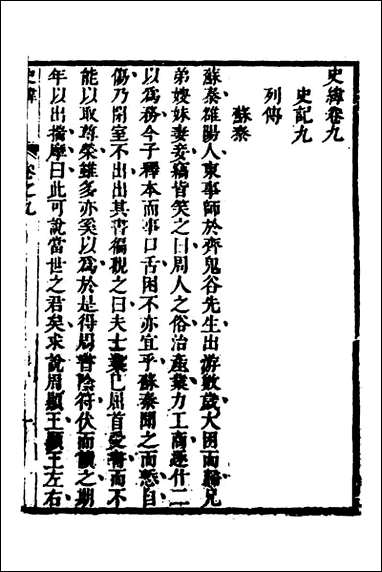 史緯卷九
史記九
列傳
蘇秦
蘇秦雒陽人東事師於齊鬼谷先生出游數歲大困而歸兄
弟嫂妹妻妾竊皆笑之曰周人之俗治產業力工商逐什二
以為務今子釋本而事口舌困不亦宜乎蘇秦聞之而慙自
傷乃閉室不出出其書徧觀之曰夫士業已屈首受書而不
能以取尊榮雖多亦奚以為於是得周書陰符伏而讀之期
年以出揣摩曰此可說當世之君矣求說周顯王顯王左右
史緯 卷之九